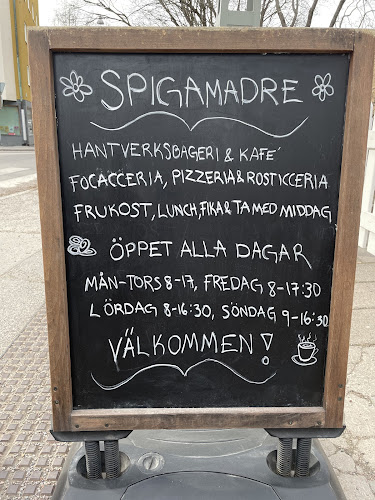 SPIGAMADRE
HANTVERKSBAGERI & KAFÉ
FOCACCERIA, PIZZERIA & ROSTICCERIA
FRUKOST, LUNCH, FIKA & TA MED MIDDAG
ÖPPET ALLA DAGAR
MÅN-TORS 8-17, FREDAG 8-17:30
LÖRDAG 8-16:30, SÖNDAG 9-16:30
VÄLKOMMEN!